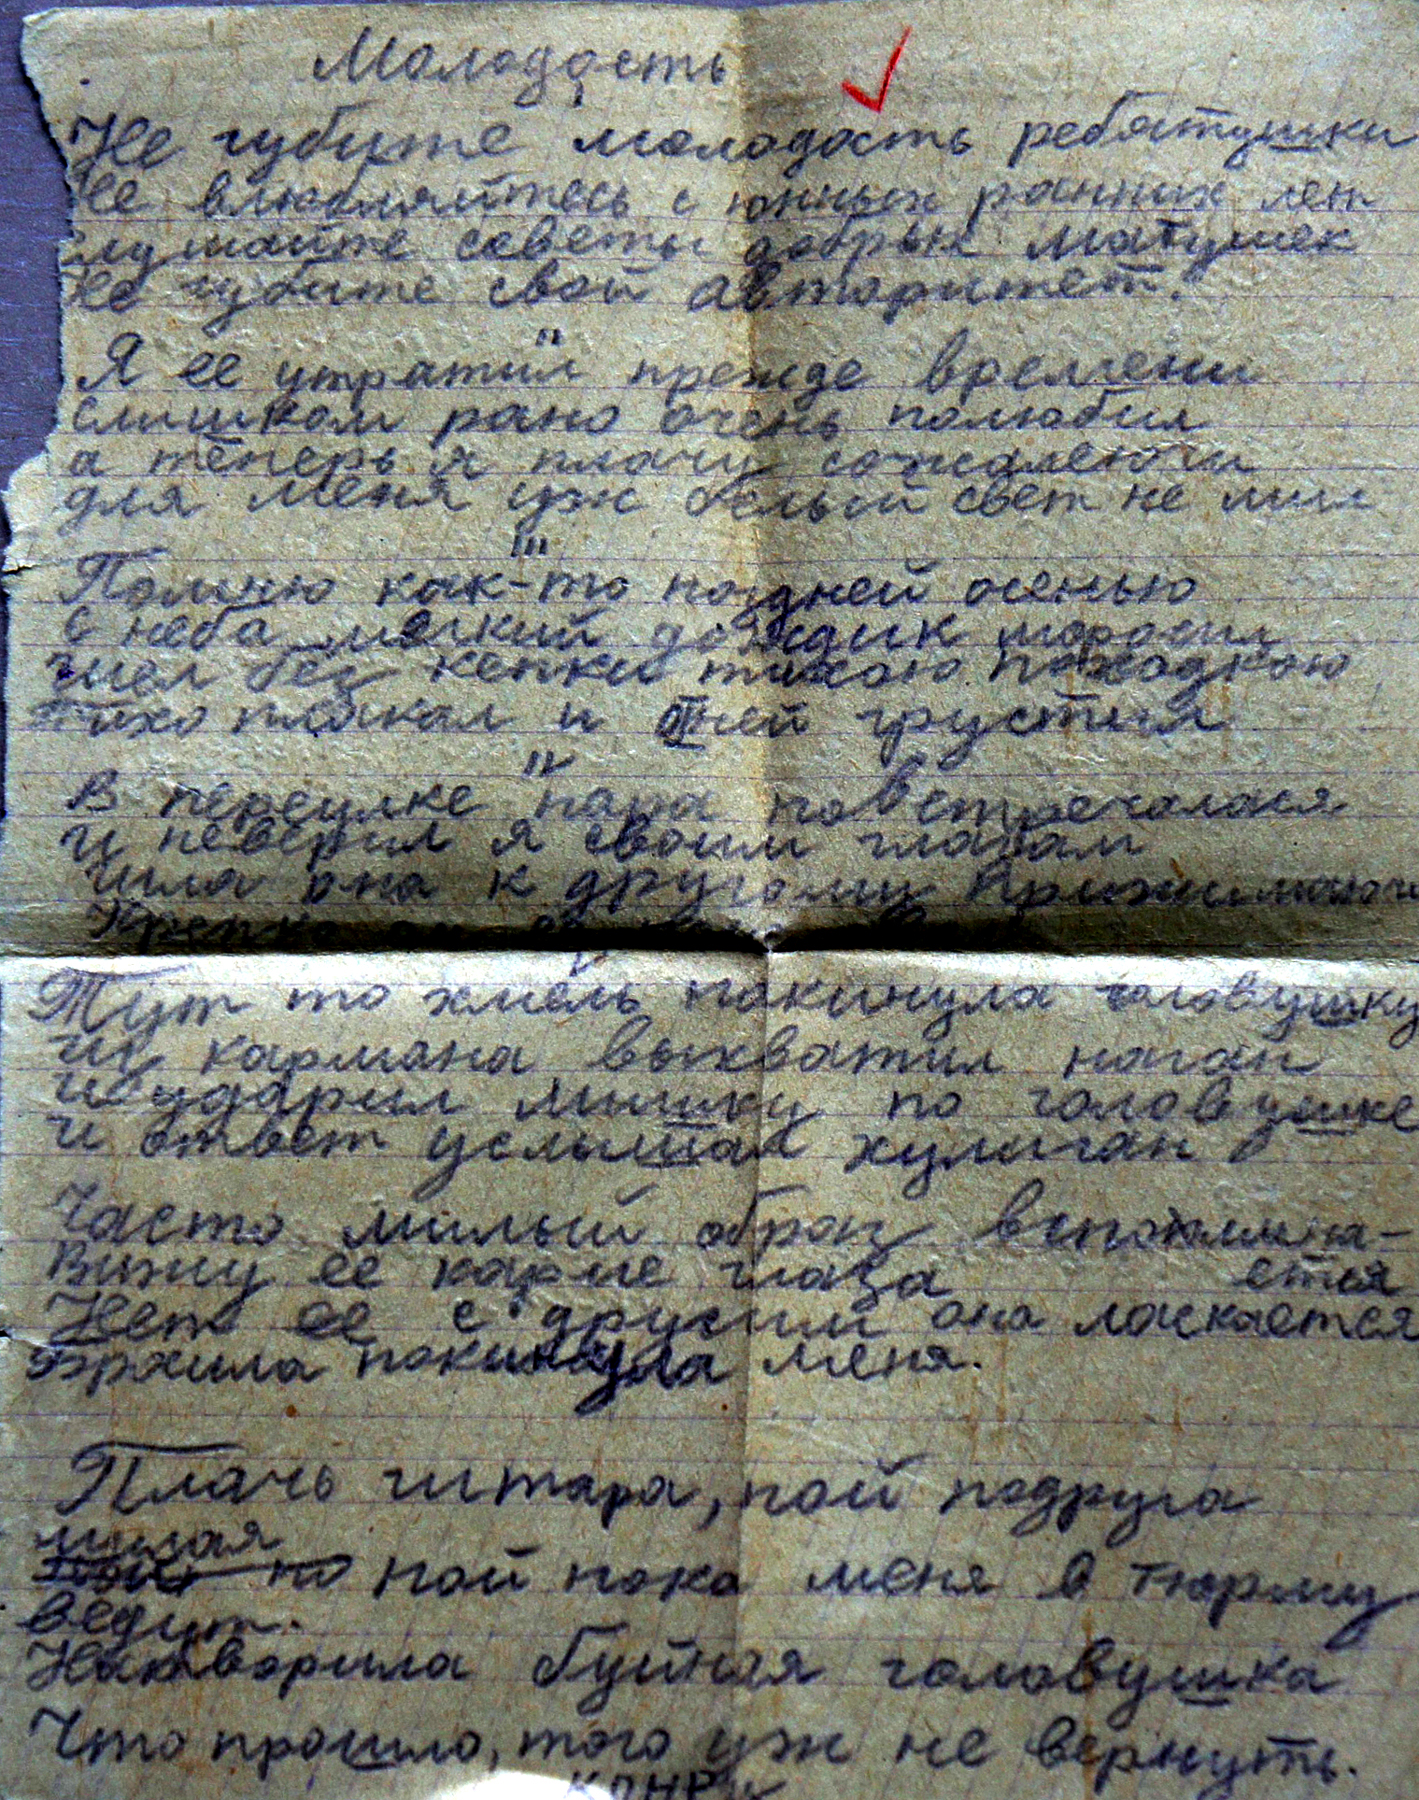 Молодость
Не губите молодость ребятушки
Не влюбляйтесь с юнных ранних лет
слушайте советы добрых матушек
Не губите свой авторитет.
"
Я ее утратил прежде времени
слишком рано очень полюбил
а теперь я плачу сожалеючи
для меня уж белый свет не мил
"'
Помню как-то поздней осенью
с неба мелкий дождик моросил
шел без кепки тихою походкою
Тихо плакал и о ней грустил
"
В переулке пара повстречалася
и неверил я своим глазам
шла она к другому прижимаючи
Крепко
Тут то хмель покинула головушку
из кармана выхватил наган
и ударил мишку по головушке
и ответ услышал хулиган
Часто милый образ вспомина-
ется
Вижу ее карие глаза
Нет ее с другим она ласкается
покинула меня.
Плачь гитара, пой подруга
милая
пой пока меня в тюрьму
ведут.
Натворила буйная головушка
Что прошло, того уж не вернуть.